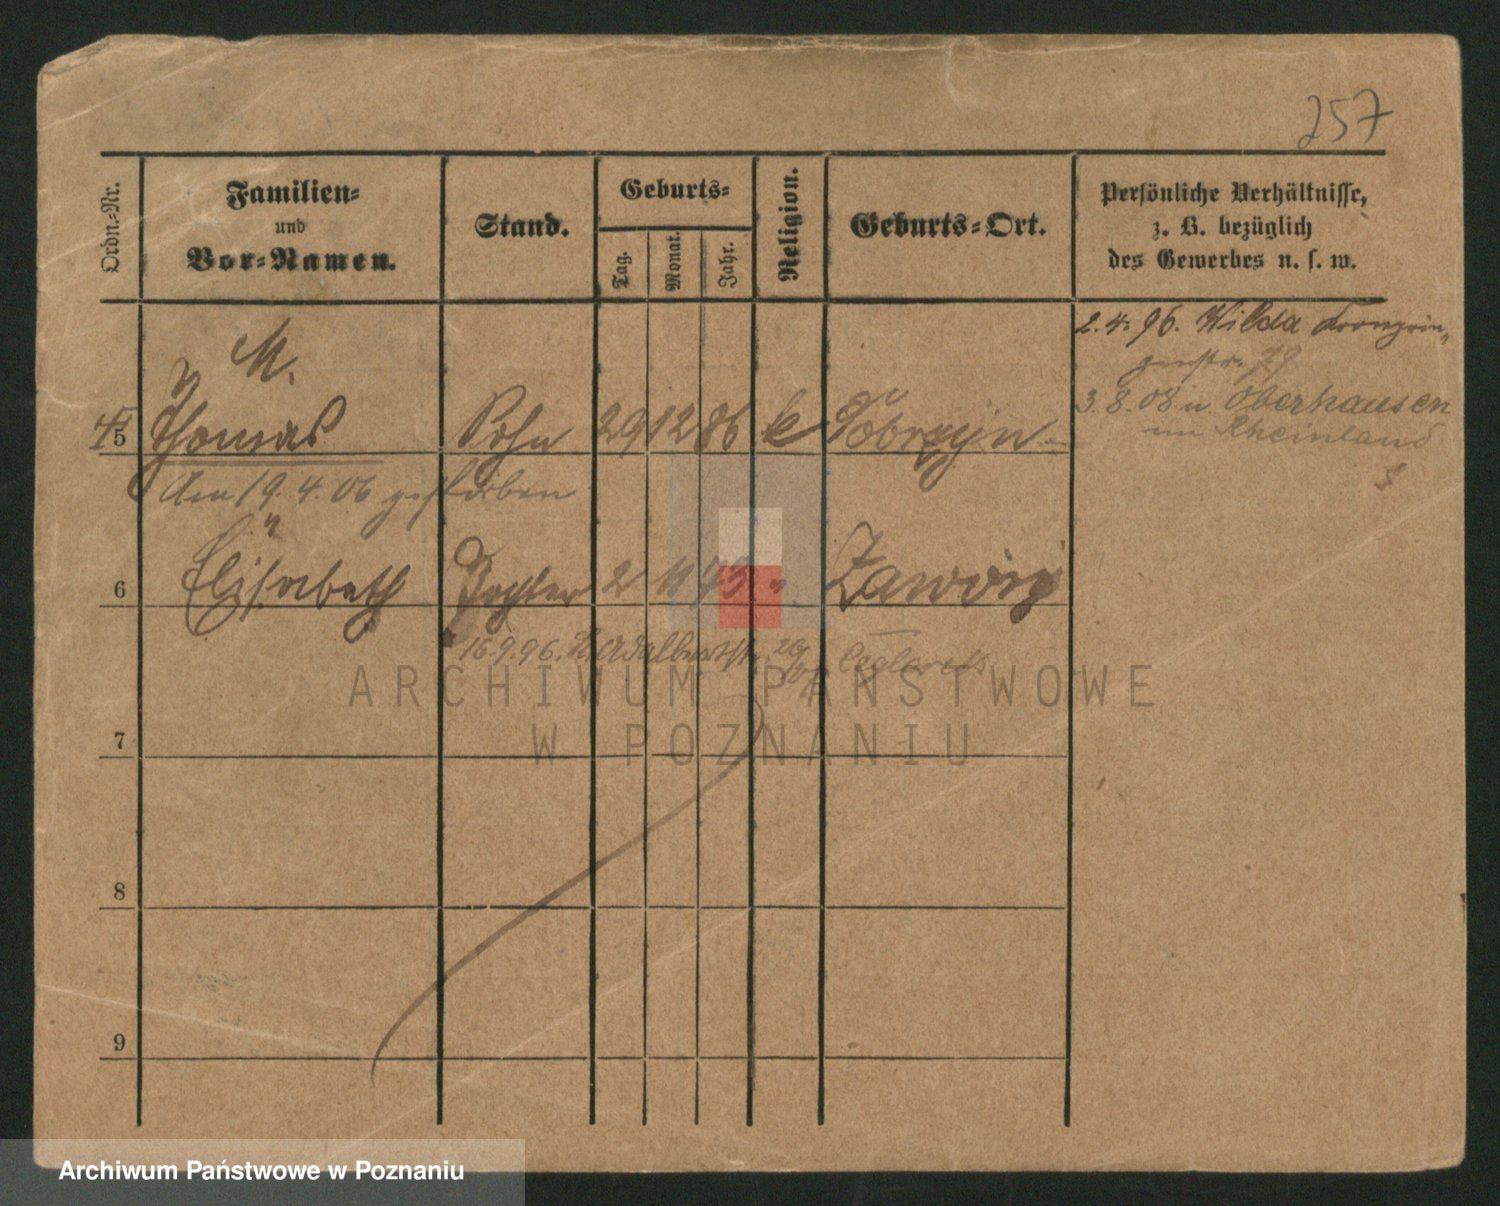 257
Ordn.-Nr.
Familien-
und
Vor-Namen.
Stand.
Geburts-
Tag.
Monat.
Jahr.
Religion.
Geburts-Ort.
Persönliche Verhältnisse,
z. B. bezüglich
des Gewerbes u. s. w.
2. 4. 96. Wilda Kronprin-
zenstr. 79
3. 8. 08 n Oberhausen
im Rheinland
M.
5 Thomas Sohn 29 12 86 k
Am 19. 4. 06 gestorben
6 Elisabeth Tochter 2 11
16. 9. 96. Adalbertstr.
7
8
9
ARCHIWUM PAŃSTWOWE
W POZNANIU
Archiwum Państwowe w Poznaniu